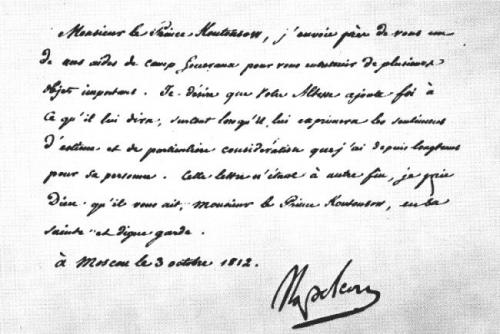 Monsieur le Prince Koutousow, j'envoie près de vous un
de mes aides de camp Generaux pour vous entretenir de plusieurs
objets importans. Je désire que Votre Altesse ajoute foi à
ce qu'il lui dira, surtout lorsqu'il lui exprimera les sentimens
d'estime et de particulière considération que j'ai depuis longtems
pour sa personne. Cette lettre n'étant à autre fin, je prie
Dieu qu'il vous ait, Monsieur le Prince Koutousow, en sa
sainte et digne garde.
à Moscou le 3 octobre 1812.
Napoleon